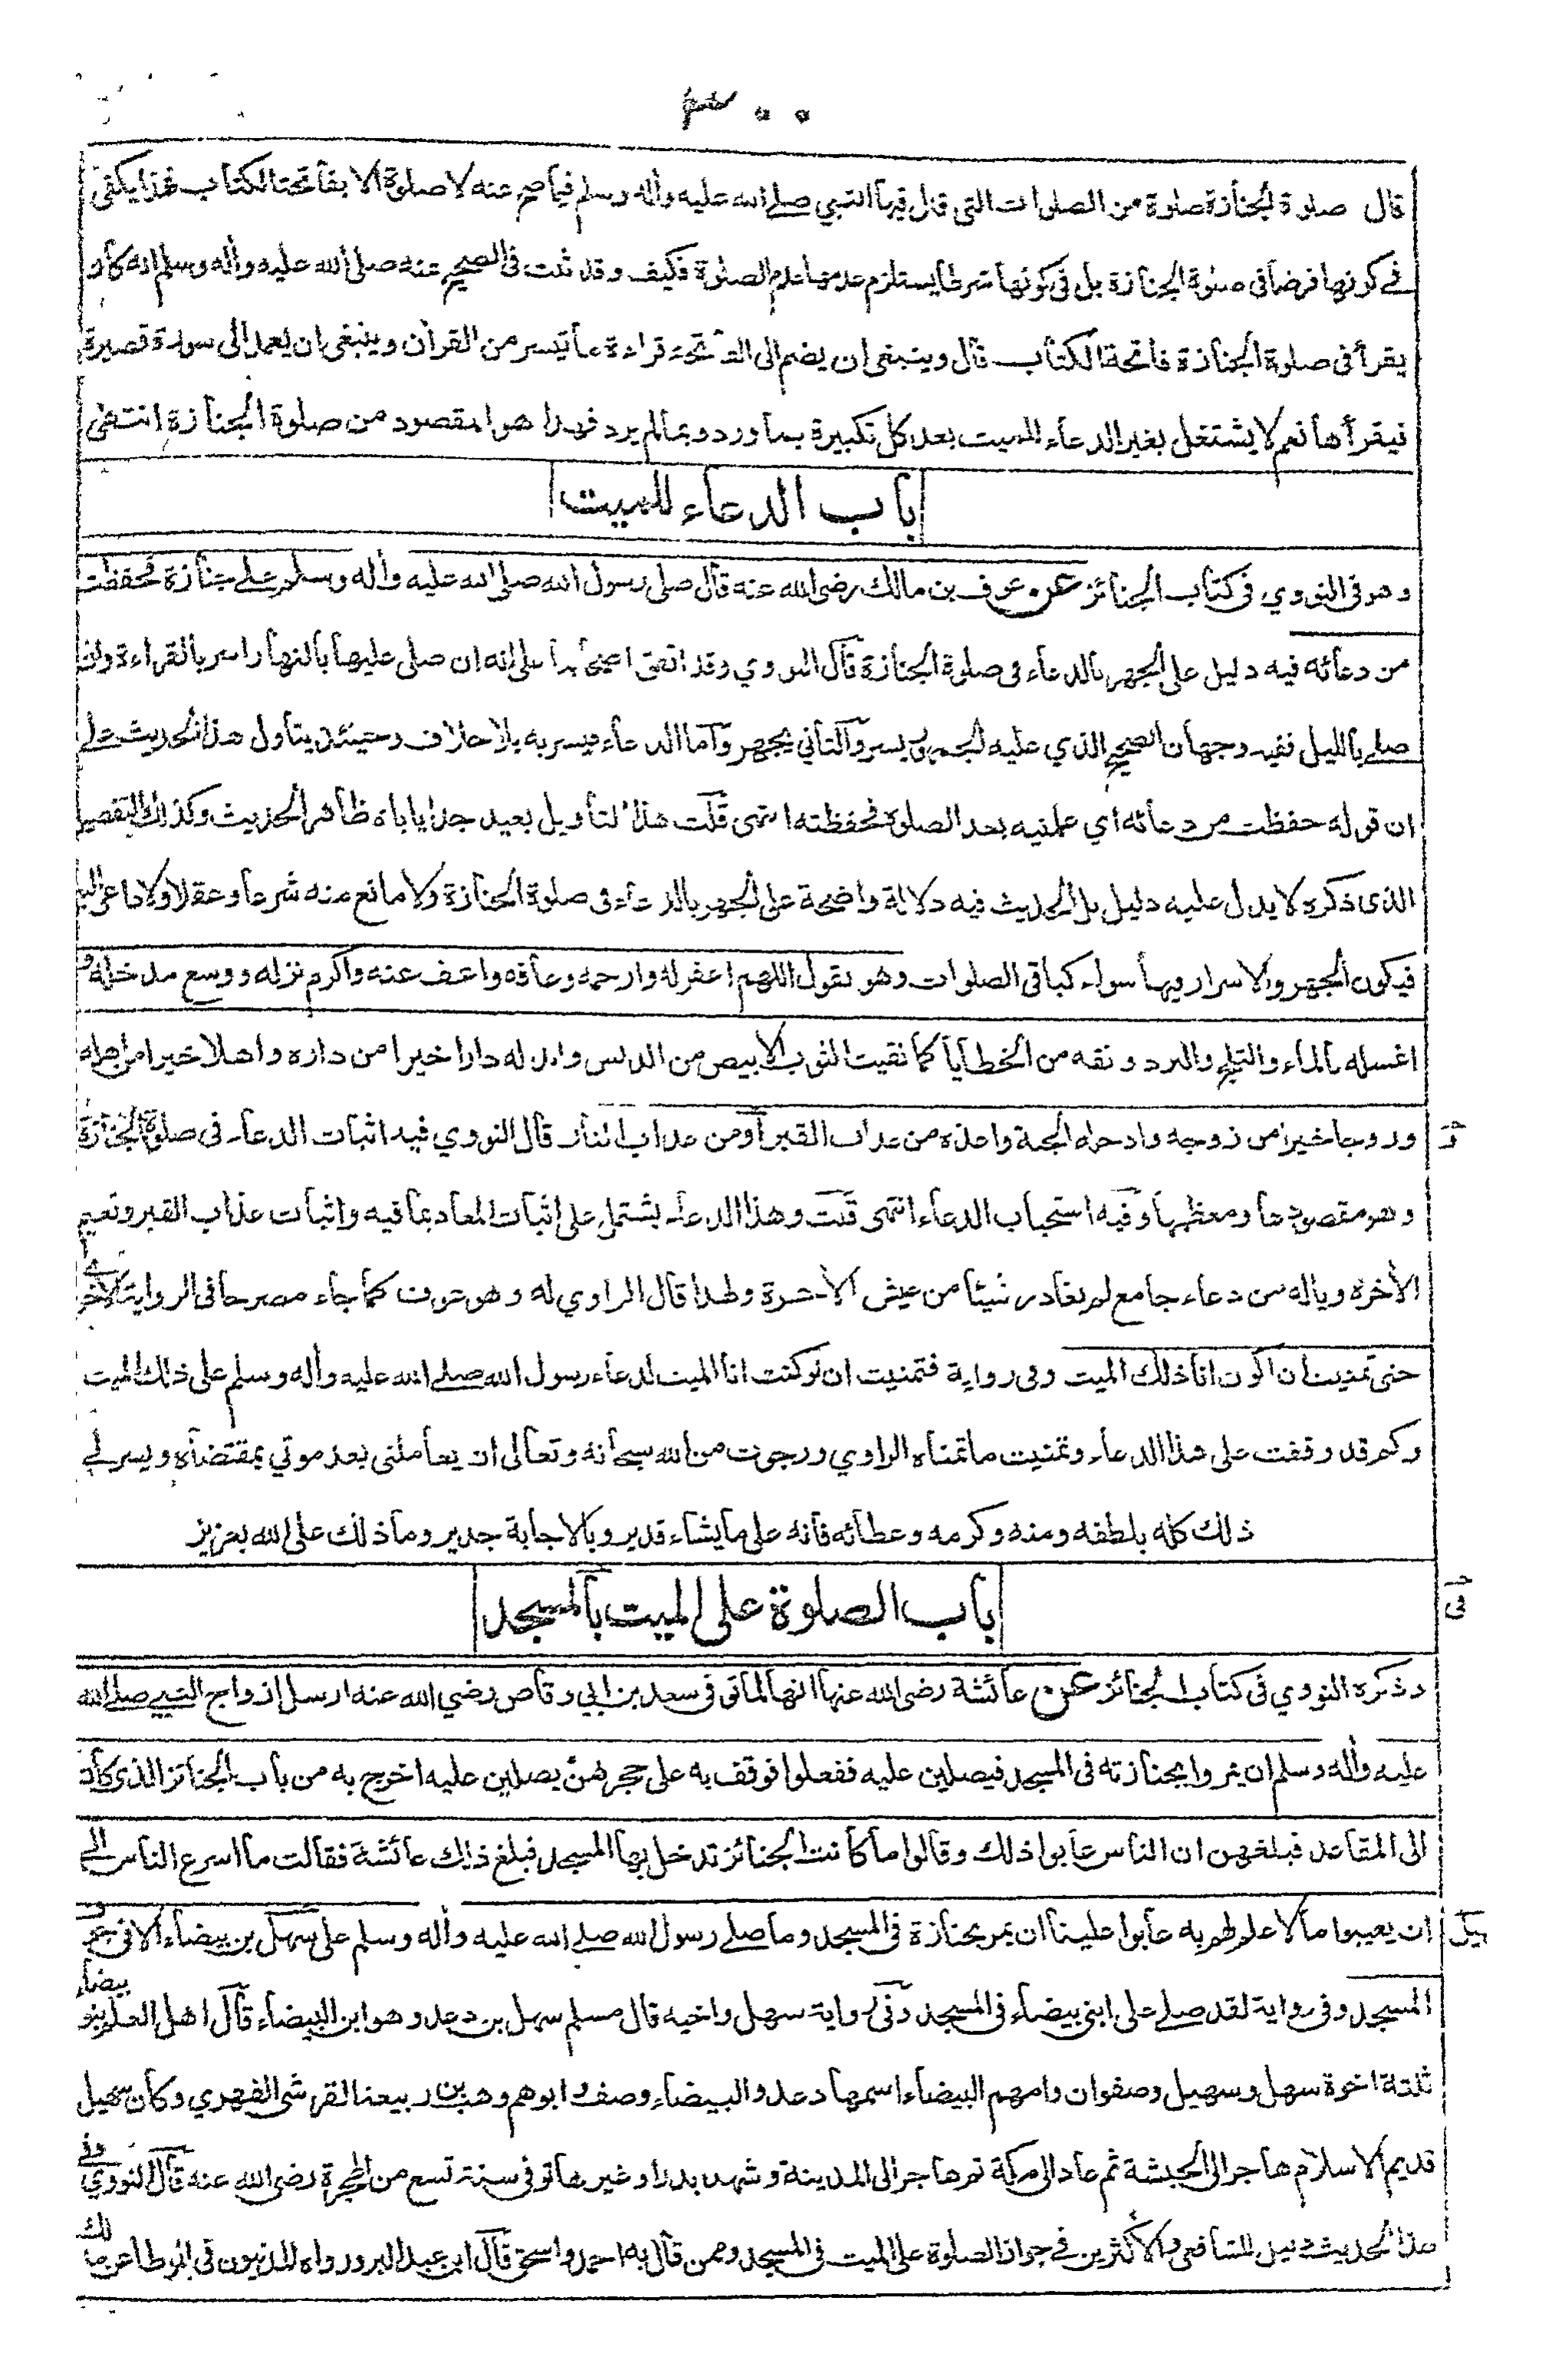 ٣٠٠
قال صلوة الجنازة صلوة من الصلوات التي قال فيها النبي صلے الله عليه وأله وسلم فيما صح عنه لا صلوة الا بفاتحة الكتاب فهذا يكفي
في كونها فرضا في صلوة الجنازة بل في كونها شرطا يستلزم عدمها عدم الصلوة فكيف وقد ثبت في الصحيح عنه صلى الله عليه وأله وسلم انه كان
يقرأ في صلوة الجنازة فاتحة الكتاب قال وينبغي ان يضم الى الفاتحة قراءة ما تيسر من القرأن وينبغي ان يعمد الى سورة قصيرة
فيقرأها نعم لا يشتغل بغير الدعاء للميت بعد كل تكبيرة بما ورد وبما لم يرد فهذا هو المقصود من صلوة الجنازة انتهى
باب الدعاء للميت
وهو في النووي في كتاب الجنائز عن عوف بن مالك رضي الله عنه قال صلى رسول الله صلى الله عليه وأله وسلم على جنازة فحفظت
من دعائه فيه دليل على الجهر بالدعاء في صلوة الجنازة قال النووي وقد اتفق اصحابنا على انه ان صلى عليها بالنهار اسر بالقراءة وان
صلے بالليل ففيه وجهان الصحيح الذي عليه الجمهور يسر والثاني يجهر واما الدعاء فيسر به بلا خلاف وحينئذ يتأول هذا الحديث على
ان قوله حفظت من دعائه اي علمنيه بعد الصلوة فحفظته انتهى قلت هذا التأويل بعيد جدا يأباه ظاهر الحديث وكذلك التفصيل
الذي ذكره لا يدل عليه دليل بل الحديث فيه دلالة واضحة على الجهر بالدعاء في صلوة الجنازة ولا مانع منه شرعا وعقلا ولا داعي اليه
فيكون الجهر والاسرار فيها سواء كباقي الصلوات وهو يقول اللهم اغفر له وارحمه وعافه واعف عنه واكرم نزله ووسع مدخله و
اغسله بالماء والثلج والبرد ونقه من الخطايا كما نقيت الثوب الابيض من الدنس وابدله دارا خيرا من داره واهلا خيرا من اهله
وزوجا خيرا من زوجه وادخله الجنة واعذه من عذاب القبر او من عذاب النار قال النووي فيه اثبات الدعاء في صلوة الجنازة
وهو مقصودها ومعظمها وفيه استحباب الدعاء انتهى قلت وهذا الدعاء يشتمل على اثبات المعاد بما فيه واثبات عذاب القبر ونعيم
الأخرة وياله من دعاء جامع لم يغادر شيئا من عيش الأخرة ولهذا قال الراوي له وهو عوف كما جاء مصرحا في الرواية الاخرى
حتى تمنيت ان اكون انا ذلك الميت وفي رواية فتمنيت ان لو كنت انا الميت لدعاء رسول الله صلے الله عليه وأله وسلم على ذلك الميت
وكم قد وقفت على هذا الدعاء وتمنيت ما تمناه الراوي ورجوت من الله سبحانه وتعالى ان يعاملني بعد موتي بمقتضاه ويسر لي
ذلك كله بلطفه ومنه وكرمه وعطائه فانه على ما يشاء قدير وبالاجابة جدير وما ذلك على الله بعزيز
باب الصلوة على الميت بالمسجد
في
وذكره النووي في كتاب الجنائز عن عائشة رضي الله عنها انها لما توفي سعد بن ابي وقاص رضي الله عنه ارسل ازواج النبي صلے الله
عليه وأله وسلم ان يمروا بجنازته في المسجد فيصلين عليه ففعلوا فوقف به على حجرهن يصلين عليه اخرج به من باب الجنائز الذي كان
الى المقاعد فبلغهن ان الناس عابوا ذلك وقالوا ما كانت الجنائز تدخل بها المسجد فبلغ ذلك عائشة فقالت ما اسرع الناس الى
ان يعيبوا ما لا علم لهم به عابوا علينا ان يمر بجنازة في المسجد وما صلے رسول الله صلے الله عليه وأله وسلم على سهل بن بيضاء الا في جوف
المسجد وفي رواية لقد صلے على ابني بيضاء في المسجد وفي رواية سهل واخيه قال مسلم سهل بن دعد وهو ابن البيضاء قال اهل العلم بنو بيضاء
ثلثة اخوة سهل وسهيل وصفوان وامهم البيضاء اسمها دعد والبيضاء وصف وابوهم وهب بن ربيعة القرشي الفهري وكان سهيل
قديم الاسلام هاجر الى الحبشة ثم عاد الى مكة ثم هاجر الى المدينة وشهد بدرا وغيرها توفي سنة تسع من الهجرة رضي الله عنه قال النووي وفي
هذا الحديث دليل للشافعي والاكثرين في جواز الصلوة على الميت في المسجد وممن قال به احمد واسحق قال ابن عبد البر ورواه المدنيون في الموطا عن مالك